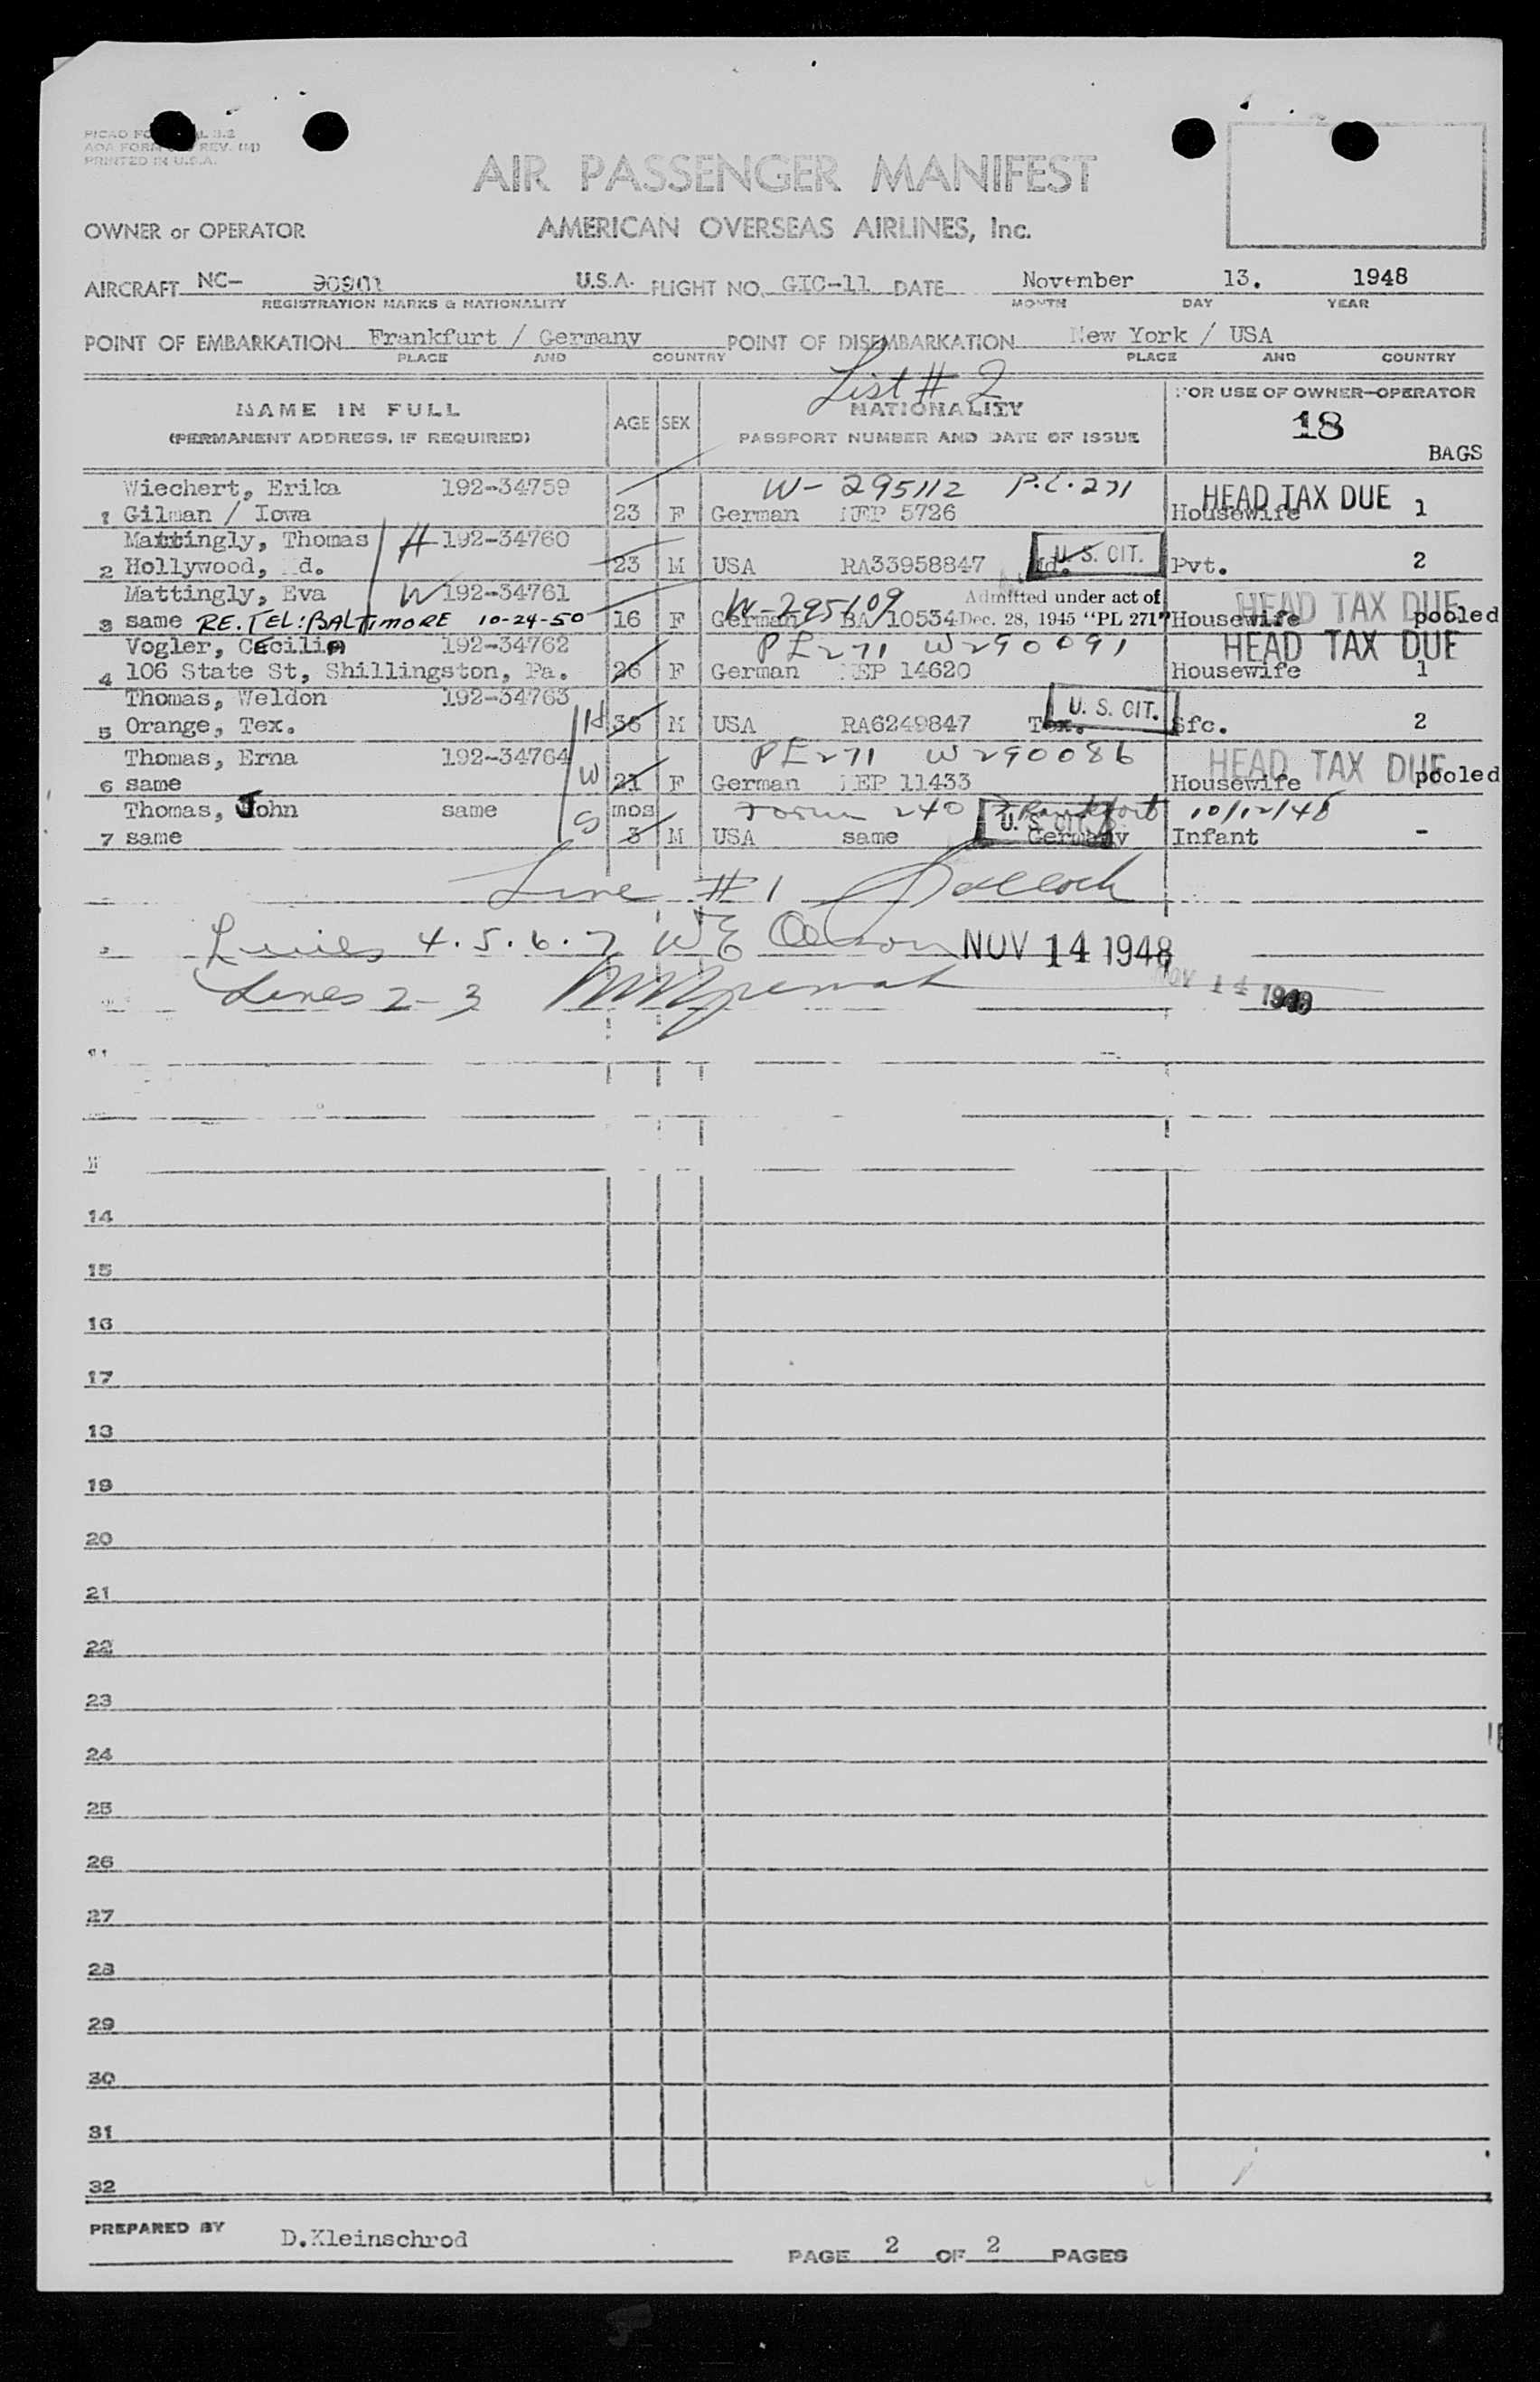 PICAO FO
AOA FORM REV. (M)
PRINTED IN U.S.A.
AIR PASSENGER MANIFEST
OWNER or OPERATOR AMERICAN OVERSEAS AIRLINES, Inc.
AIRCRAFT NC- 90901 U.S.A. FLIGHT NO. GIC-11 DATE November 13. 1948
REGISTRATION MARKS & NATIONALITY MONTH DAY YEAR
POINT OF EMBARKATION Frankfurt / Germany POINT OF DISEMBARKATION New York / USA
PLACE AND COUNTRY PLACE AND COUNTRY
List # 2
NAME IN FULL AGE SEX NATIONALITY FOR USE OF OWNER-OPERATOR
(PERMANENT ADDRESS, IF REQUIRED) PASSPORT NUMBER AND DATE OF ISSUE 18
BAGS
Wiechert, Erika 192-34759 W-295112 P.L.271 HEAD TAX DUE
1 Gilman / Iowa 23 F German MEP 5726 Housewife 1
Mattingly, Thomas H 192-34760 U.S. CIT.
2 Hollywood, d. 23 M USA RA33958847 Md. Pvt. 2
Mattingly, Eva W 192-34761 W-295109 Admitted under act of HEAD TAX DUE
3 same RE.TEL:BALTIMORE 10-24-50 16 F German BA/10534 Dec. 28, 1945 "PL 271" Housewife pooled
Vogler, Cecilia 192-34762 PL271 W290091 HEAD TAX DUE
4 106 State St, Shillingston, Pa. 26 F German MEP 14620 Housewife 1
Thomas, Weldon 192-34763 U. S. CIT.
5 Orange, Tex. H 36 M USA RA6249847 Tex. Sfc. 2
Thomas, Erna 192-34764 PL271 W290086 HEAD TAX DUE
6 same W 21 F German MEP 11433 Housewife pooled
Thomas, John same S mos Form 240 Frankfort 10/12/48
7 same 3 M USA same U. S. CIT. Germany Infant -
Line #1
Lines 4.5.6.7 WE NOV 14 1948
Lines 2-3 NOV 14 1948
14
15
16
17
18
19
20
21
22
23
24
25
26
27
28
29
30
31
32
PREPARED BY D.Kleinschrod PAGE 2 OF 2 PAGES